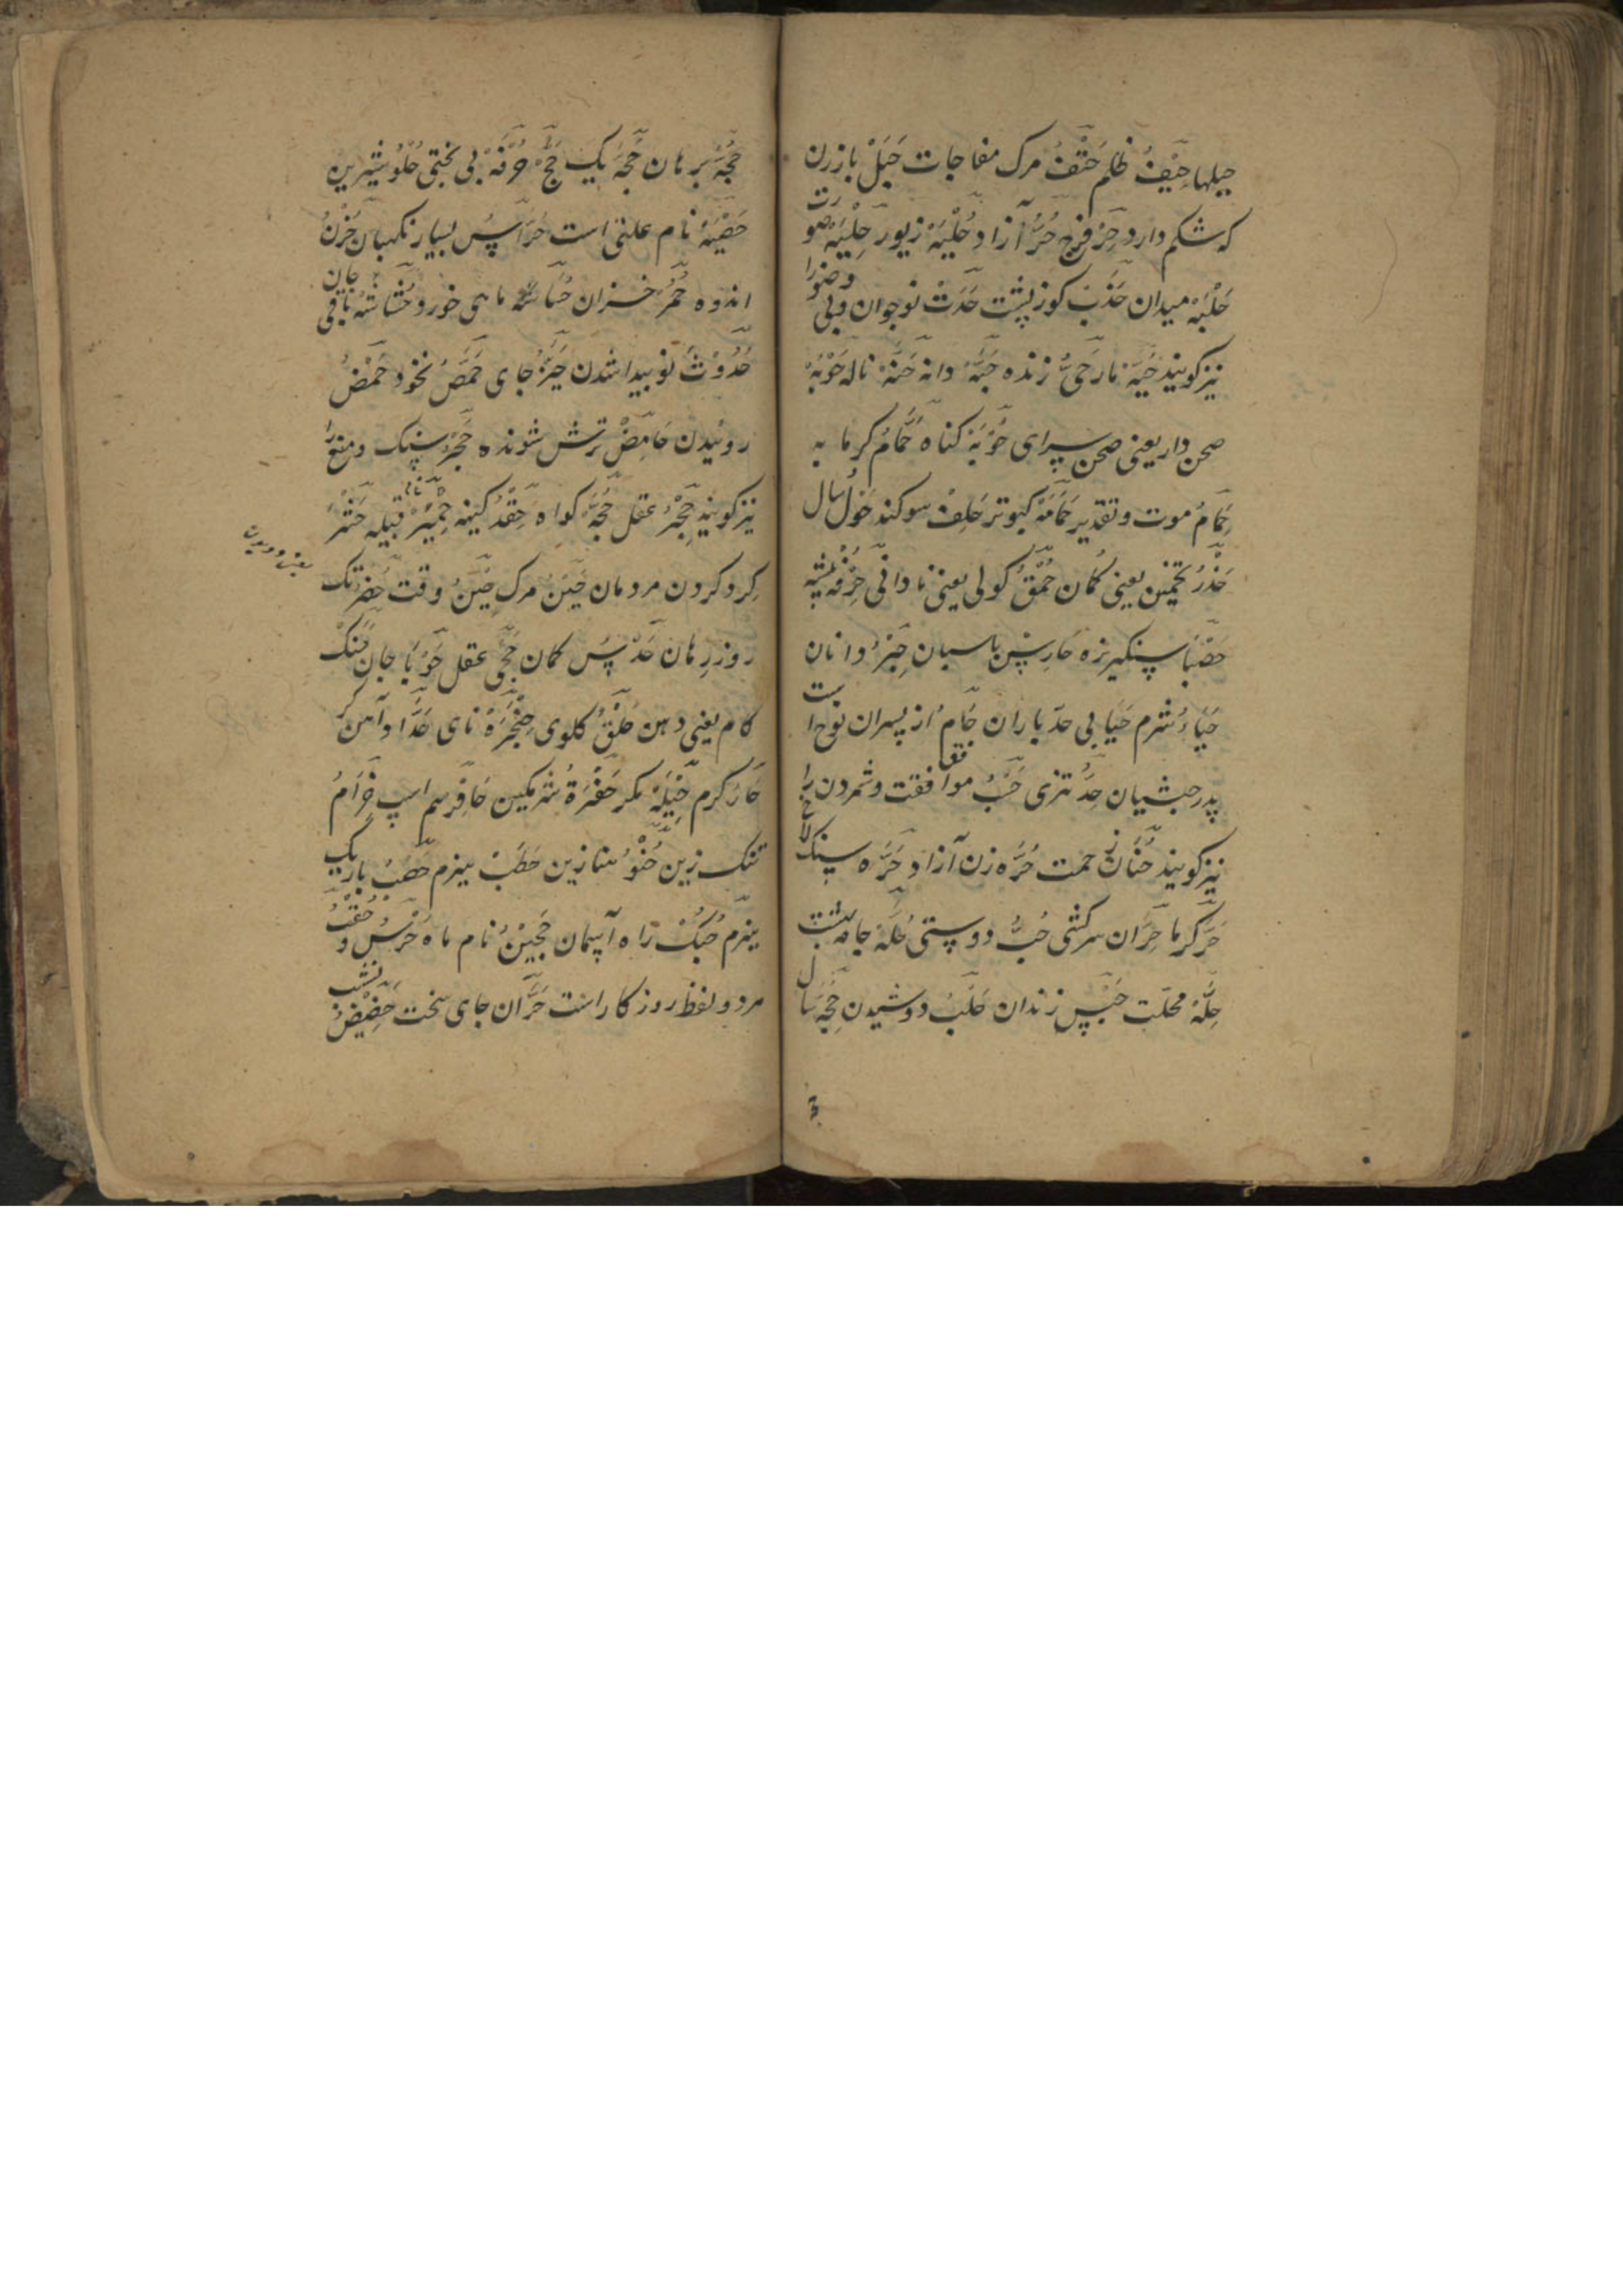 حیلها حَیْفُ ظلم حَتْفُ مرک مفاجات حَبَلْ بازرن
که شکم دارد حِرْ فرج حُرُّ آزاد حُلْیَهْ زیور حِلْیَهْ صورت
حَلْبَهْ میدان حَدَبْ کوز پشت حَدَثْ نوجوان وبی وضورا
نیز کویند حَیَّهْ مار حَیُّ زنده حَبَّهْ دانه حَنَّهْ ناله حَوْبَهْ
صحن دار یعنی صحن سرای حُوْبَهْ کناه حَمَّامُ کرما به
حِمَامُ موت وتقدیر حَمَامَهْ کبوتر حَلِفْ سوکند حَوْلُ سال
حَذْرُ تخمین یعنی کمان حُمْقُ کولی یعنی نادانی حِرْفَهْ پیشه
حَصْبَا سنکریزه حَارِسْ پاسبان حِبْرُ دانان
حَیَاءُ شرم حَیَا بی حد باران حَامُ از پسران نوح است
پدر حبشیان حِدَّ تزی حَسْبُ موافقت وشمردن را
نیز کویند حَنَانُ رحمت حُرَّه زن آزاد حَرَّه سنک لاخ
حَرَّ کرما حِرَان سرکشی حُبُّ دوستی حُلَّهْ جامه
حِلَّهْ محلت حَبْسْ زندان حَلَبُ دوشیدن حِجَّهْ سال
حُجَّهْ برهان حَجَّهْ یک حَجّْ حُرْفَهْ بی بختی حُلْو شیرین
حَصْبَهْ نام علتی است حَرَّاسُ بسیار نکهبان حُزْنُ
اندوه حُمُرْ خران ماهی خورد حُشَاشَهْ باقی جان
حُدُوْثُ نو پیدا شدن حَیِّزُ جای حِمَّصُ نخود حَمْضُ
روئیدن حَامِضْ ترش شونده حَجَرْ سنک ومنع را
نیز کویند حِجْرُ عقل حُجَّهْ کواه حِقْدُ کینه حِمْیَرْ نام قبیله حَشْرُ
کرد کردن مردمان حَیْنُ مرک حِیْنُ وقت
روز رهان حَدْسُ کمان حِجَی عقل حَوْبَا جان حَنَکْ
کام یعنی دهن حَلْقُ کلوی حَنْجَرَهْ نای حَدَّاد آهن کر
حَارُ کرم حِیْلَهْ مکر شرمکین حَافِرْ سم اسپ حِزَامُ
تنک زین حِنْوُ حَطَبْ هیزم حَصَبُ باریک
هیزم حُبُکْ راه آسمان نام ماه حَرَسْ و حُقْبُ
هر دو لفظ روزکار است حَزَّان جای سخت حَضِیْضُ نشیب